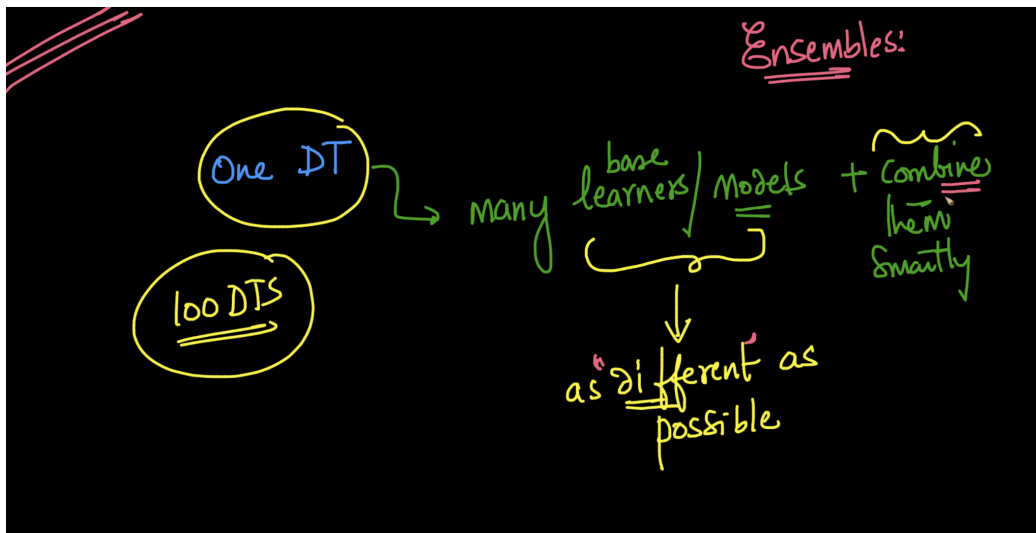 Ensembles:
One DT
many base learners / models + combine
them
smartly
100 DTS
as "different" as
possible